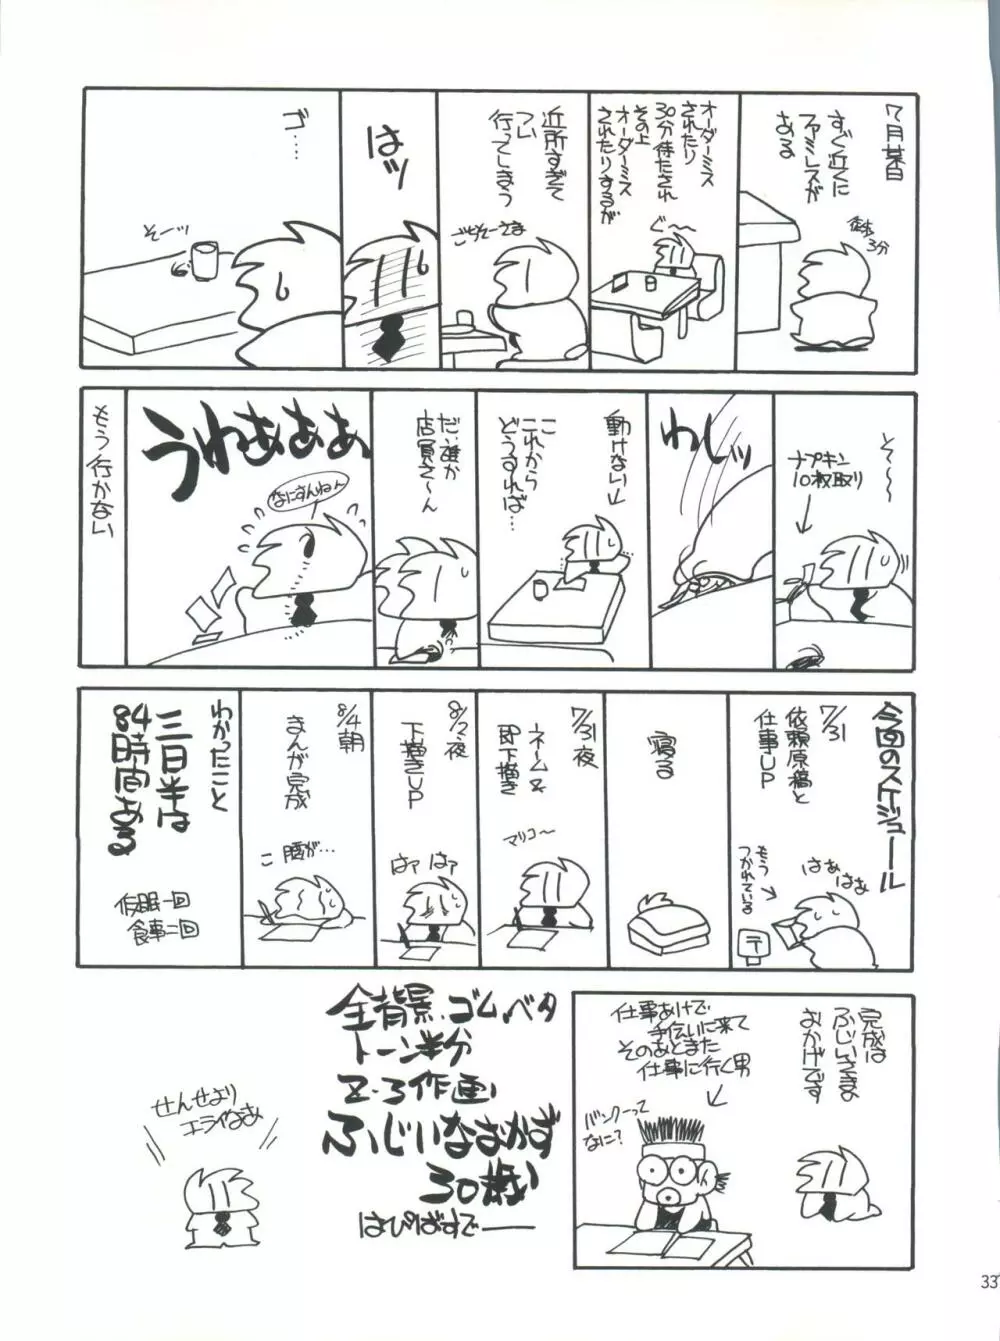 7月某日
すぐ近くに
ファミレスが
ある
徒歩
3分
オーダーミス
されたり
30分待たされ
その上
オーダーミス
されたりするが
ぐ〜
近所すぎて
つい
行ってしまう
ごちそーさま
はッ
ゴ…
そーッ
そ〜〜
ナプキン
10枚取り
わしッ
動けない
これから
どうすれば…
だ、誰か
店員さ〜ん
うわぁぁぁぁ
なにすんねん
もう行かない
今回のスケジュール
7/31
依頼原稿と
仕事UP
はぁはぁ
もう
つかれている
〒
寝る
7/31夜
ネーム&
即下描き
マリコ〜
8/2夜
下描きUP
はァはァ
8/4朝
まんが完成
こ、腰が…
わかったこと
三日半は
84時間ある
仮眠一回
食事二回
完成は
ふじいさま
おかげです
仕事あけで
手伝いに来て
そのあとまた
仕事に行く男
バンクーって
なに?
全背景、ゴム、ベタ
トーン半分
Z・3作画
ふじいなおかず
30歳
はぴばすでー
せんせより
エライなあ
33